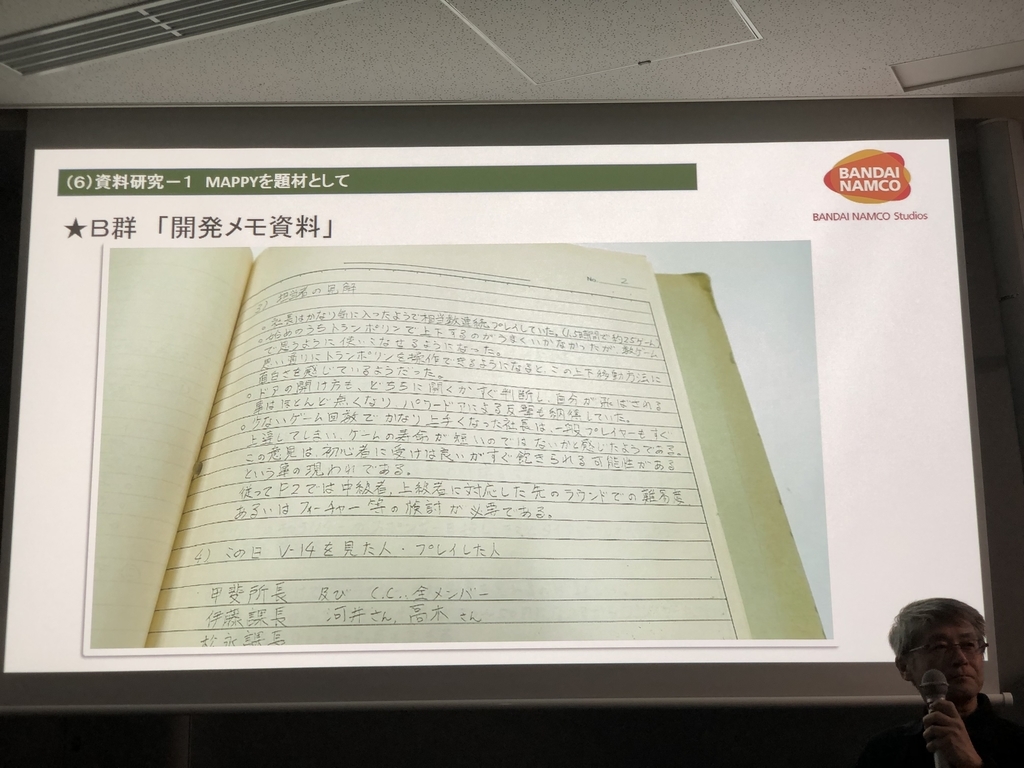 (6)資料研究－1 MAPPYを題材として
BANDAI
NAMCO
BANDAI NAMCO Studios
★B群 「開発メモ資料」
No. 2
3) 担当者の見解
○社長はかなり気に入ったようで相当数連続プレイしていた。(1.5時間で約25ゲーム)
○始めのうちトランポリンで上下するのがうまくいかなかったが、数ゲーム
で思うように使いこなせるようになった。
思い通りにトランポリンを操作できるようになると、この上下移動方法に
面白さを感じているようだった。
○ドアの開け方も、どちらに開くかすぐ判断し、自分が飛ばされる
事はほとんど無くなり、パワードアによる反撃も納得していた。
○少ないゲーム回数でかなり上手くなった社長は、一般プレイヤーもすぐ
上達してしまい、ゲームの寿命が短いのではないかと感じたようである。
この意見は、初心者に受けは良いがすぐ飽きられる可能性がある
という事の現われである。
従ってF2では中級者,上級者に対応した先のラウンドでの難易度
あるいはフィーチャー等の検討が必要である。
4) この日 V-14を見た人・プレイした人
甲斐所長 及び C.C.全メンバー
伊藤課長 河井さん,高木さん
松永課長